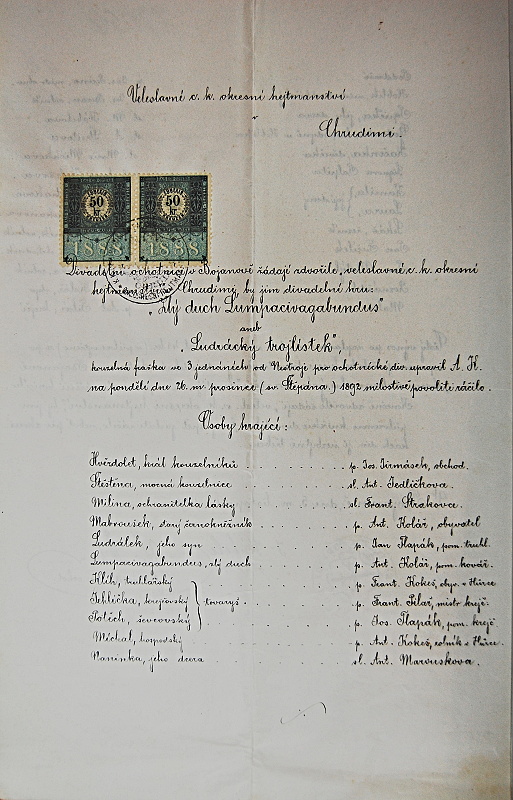 Veleslavné c. k. okresní hejtmanství
v
Chrudimi.
50 50
kr kr
1888 1888
Divadelní ochotníci v Bojanově žádají zdvořile, veleslavné c. k. okresní
hejtmanství v Chrudimi, by jim divadelní hru:
„Zlý duch Lumpacivagabundus"
aneb
„Ludrácký trojlístek",
kouzelná fraška ve 3 jednáních od Nestroje pro ochotnické div. upravil A. H.
na pondělí dne 26. m. prosince (sv. Štěpána) 1892 milostivě povoliti ráčilo.
Osoby hrající:
Hvězdolet, král kouzelníků . . . . . . p. Jos. Jirmásek, obchod.
Štěstěna, mocná kouzelnice . . . . . . sl. Ant. Jedličkova.
Milina, ochranitelka lásky . . . . . . sl. Frant. Strakova.
Mabrousek, starý čarokněžník . . . . . . p. Ant. Kolář, obyvatel
Ludrálek, jeho syn . . . . . . p. Jan Tlapák, pom. truhl.
Lumpacivagabundus, zlý duch . . . . . . p. Ant. Kolář, pom. kovář.
Klih, truhlářský . . . . . . p. Frant. Kokeš, obyv. v Hůrce
Jehlička, krejčovský } tovaryš . . . . . . p. Frant. Pilař, mistr krejč.
Potěch, ševcovský . . . . . . p. Jos. Tlapák, pom. krejč.
Michal, hospodský . . . . . . p. Ant. Kokeš, rolník v Hůrce.
Naninka, jeho dcera . . . . . . sl. Ant. Marouskova.